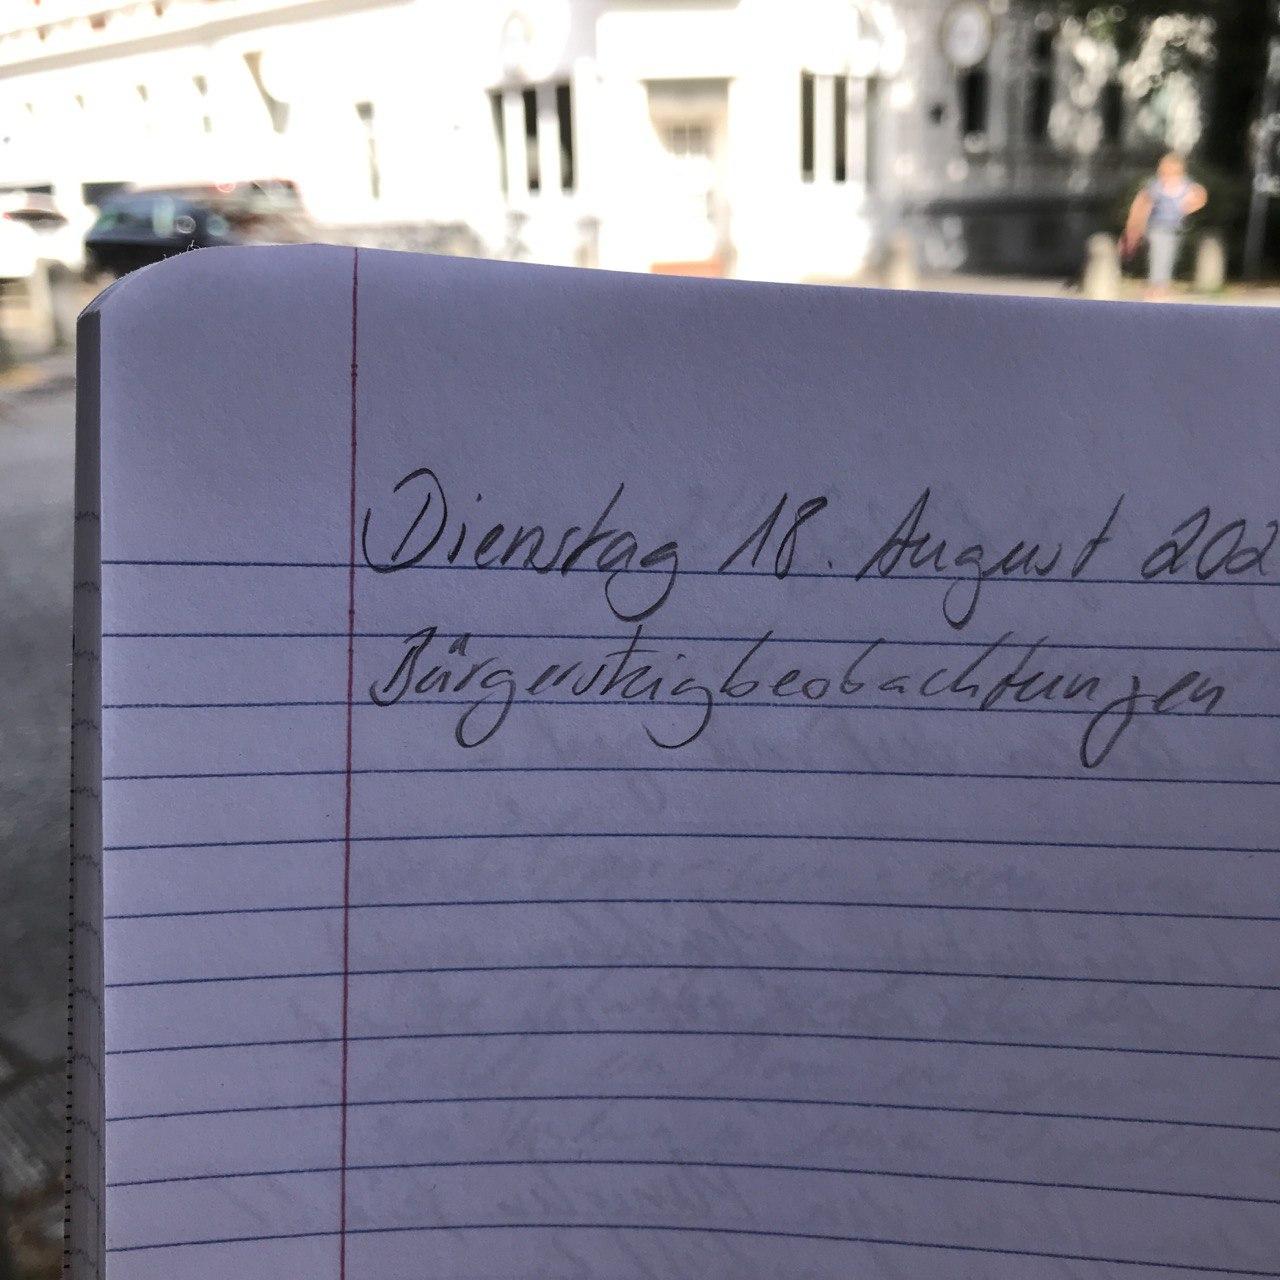 Dienstag 18. August 202
Bürgersteigbeobachtungen